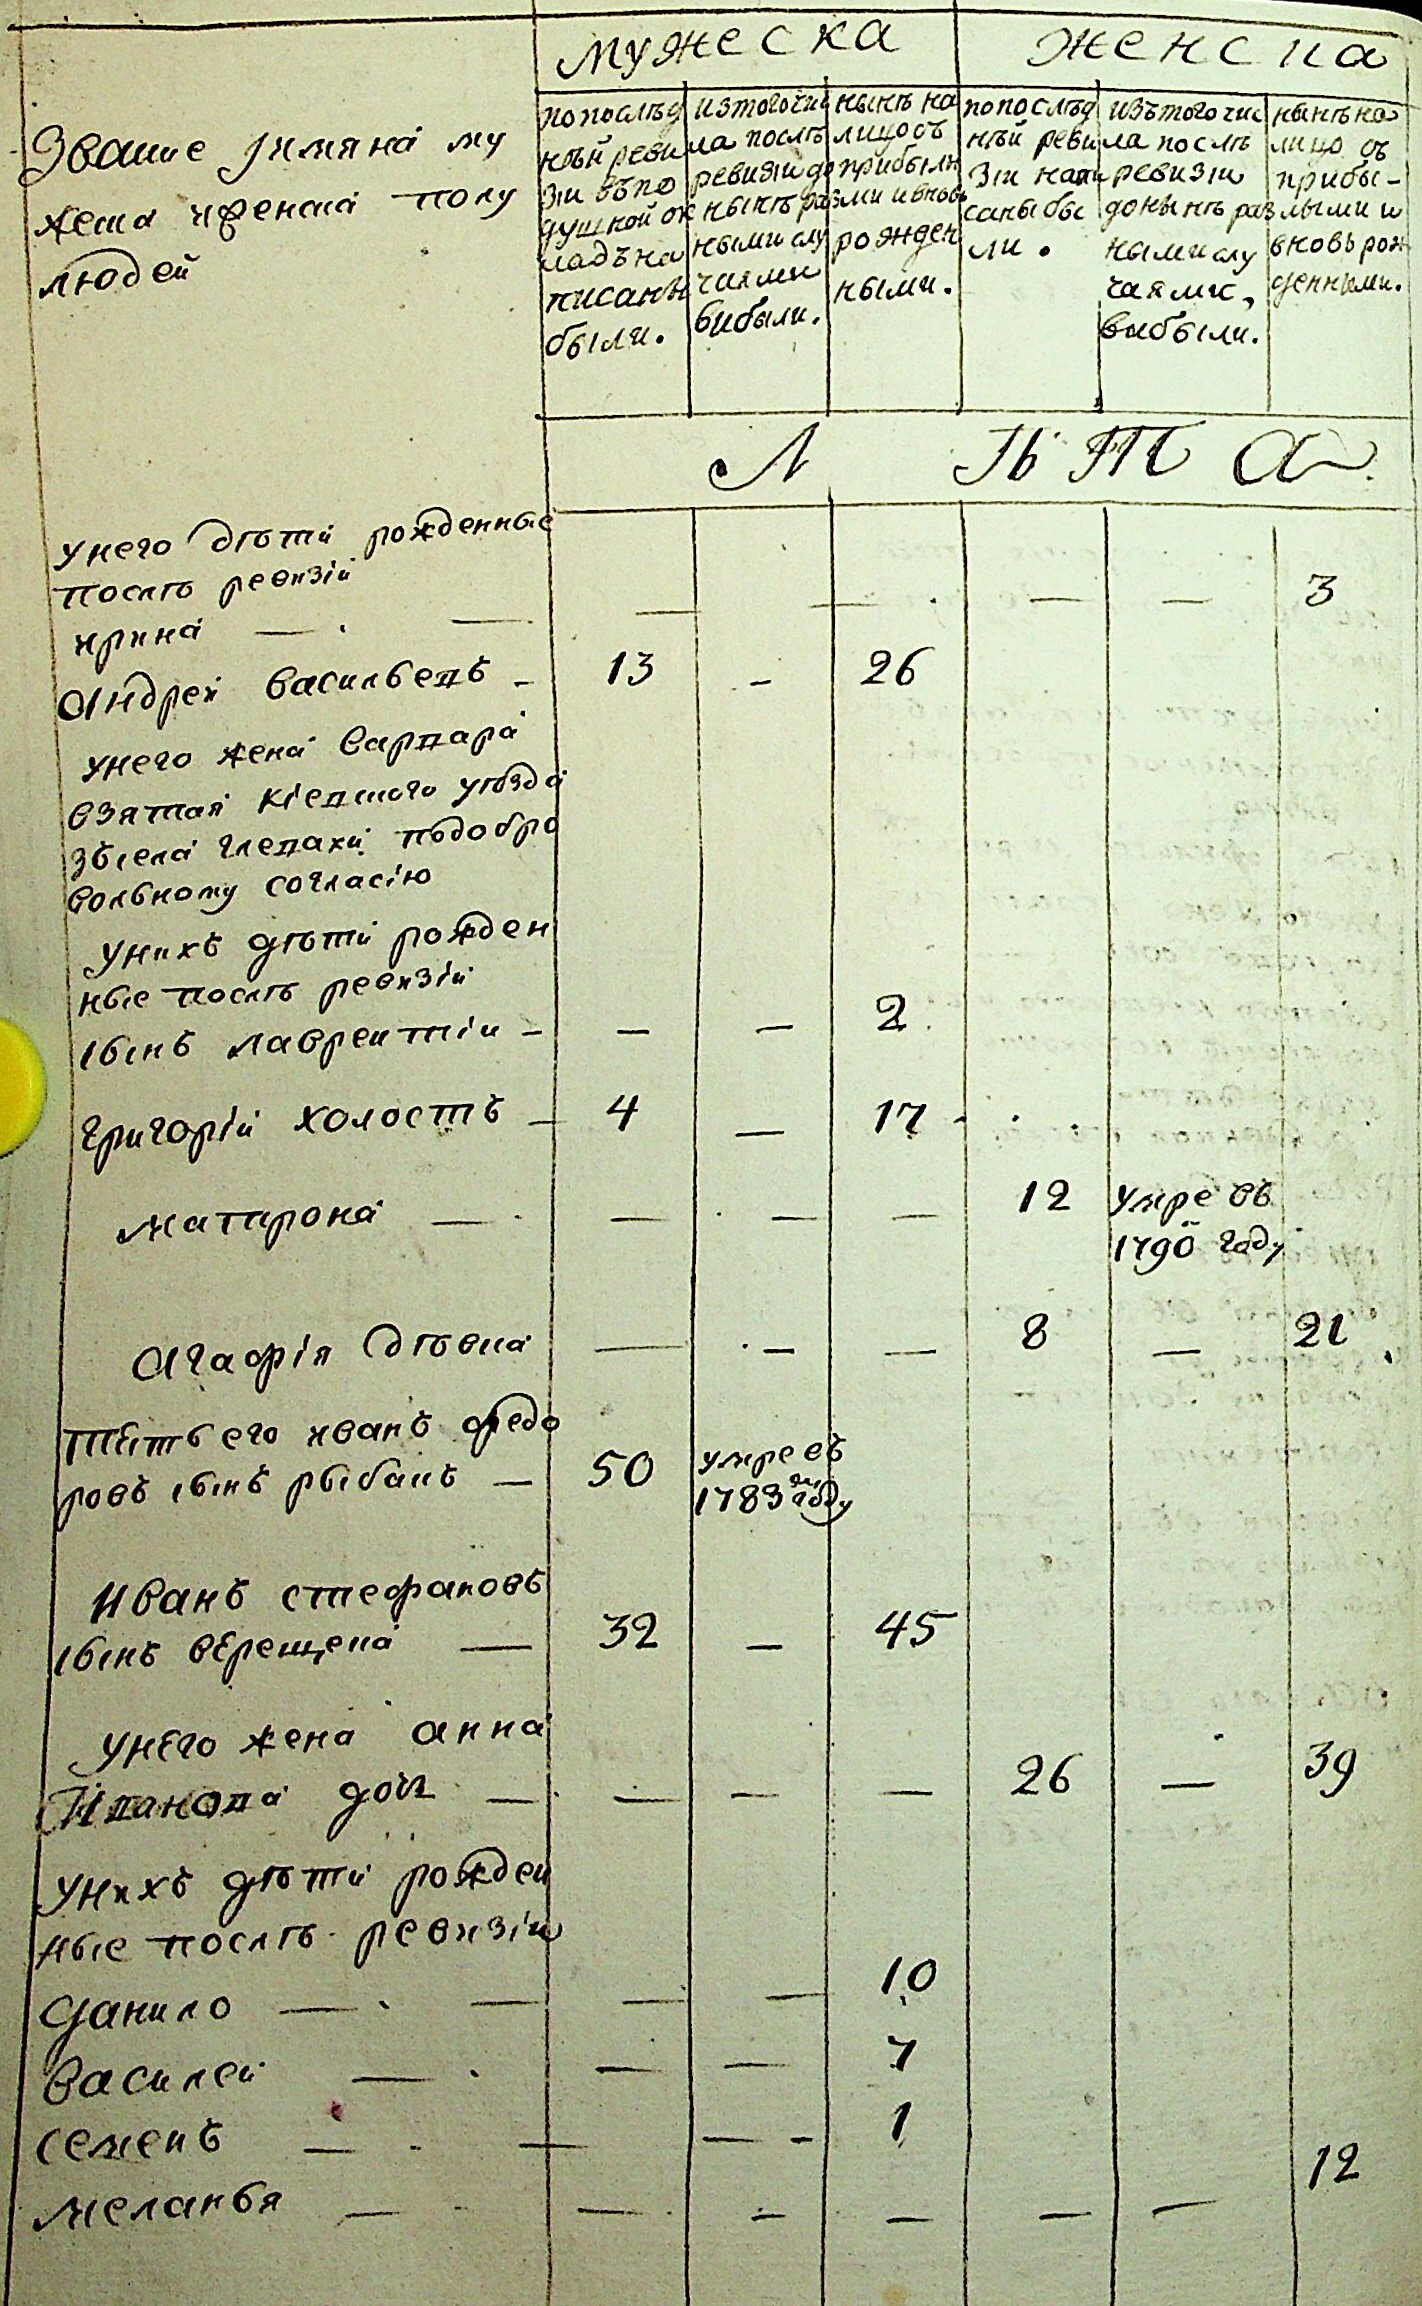 мужеска женска
Званіе и имяна му
жеска и женска полу
людей
по послѣд
нѣй реви
зіи въ по
душной ок
ладъ на
писаны
были.
изтого чис
ла послѣ
ревизіи до
нынѣ раз
ными слу
чаями
выбыли.
нынѣ на
лицо съ
прибылы
ми и вновь
рожден
ными.
по послѣд
нѣй реви
зіи напи
саны бы
ли.
изъ того чис
ла послѣ
ревизіи
до нынѣ раз
ными слу
чаями,
выбыли.
нынѣ на
лицо съ
прибы-
лыми и
вновь рож
денными.
Л ѣ т а.
унего дѣти рожденные
послѣ ревизіи
ирина — — — — — — 3
Андрей васильевъ - 13 - 26
унего жена варвара
взятая кіевского уѣзда
зсела глевахи подобро
вольному согласію
унихъ дѣти рожден
ные послѣ ревизіи
сынъ лаврентіи - — — 2
григорій холостъ - 4 — 17
матрона — — — — 12 умре въ
1790 году
Агафія дѣвка — — — 8 — 21
тесть его иванъ федо
ровъ сынъ рыбакъ — 50 умре въ
1783 году
Иванъ стефановъ
сынъ верещека — 32 — 45
унего жена анна
Иванова доч — — — — 26 — 39
унихъ дѣти рожден
ные послѣ ревизіи
данило — — — — 10
василей — — — 7
семенъ — — — - 1
меланья — — - — — — 12